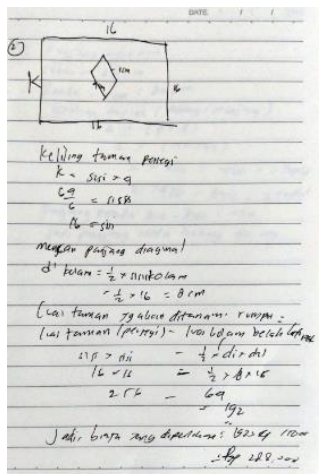 DATE / /
16
2
K
16
16
Keliling taman persegi
K = sisi × 4
64
= sisi
16 = sisi
mencari panjang diagonal
d1 kolam = 1/2 × sisi kolam
= 1/2 × 16 = 8 cm
Luas taman yg akan ditanami rumput =
Luas taman (persegi) - luas kolam belah ketupat
sisi × sisi - 1/2 × d1 × d2
16 × 16 = 1/2 × 8 × 16
256 - 64
= 192
Jadi biaya yang diperlukan =
= Rp 288.000